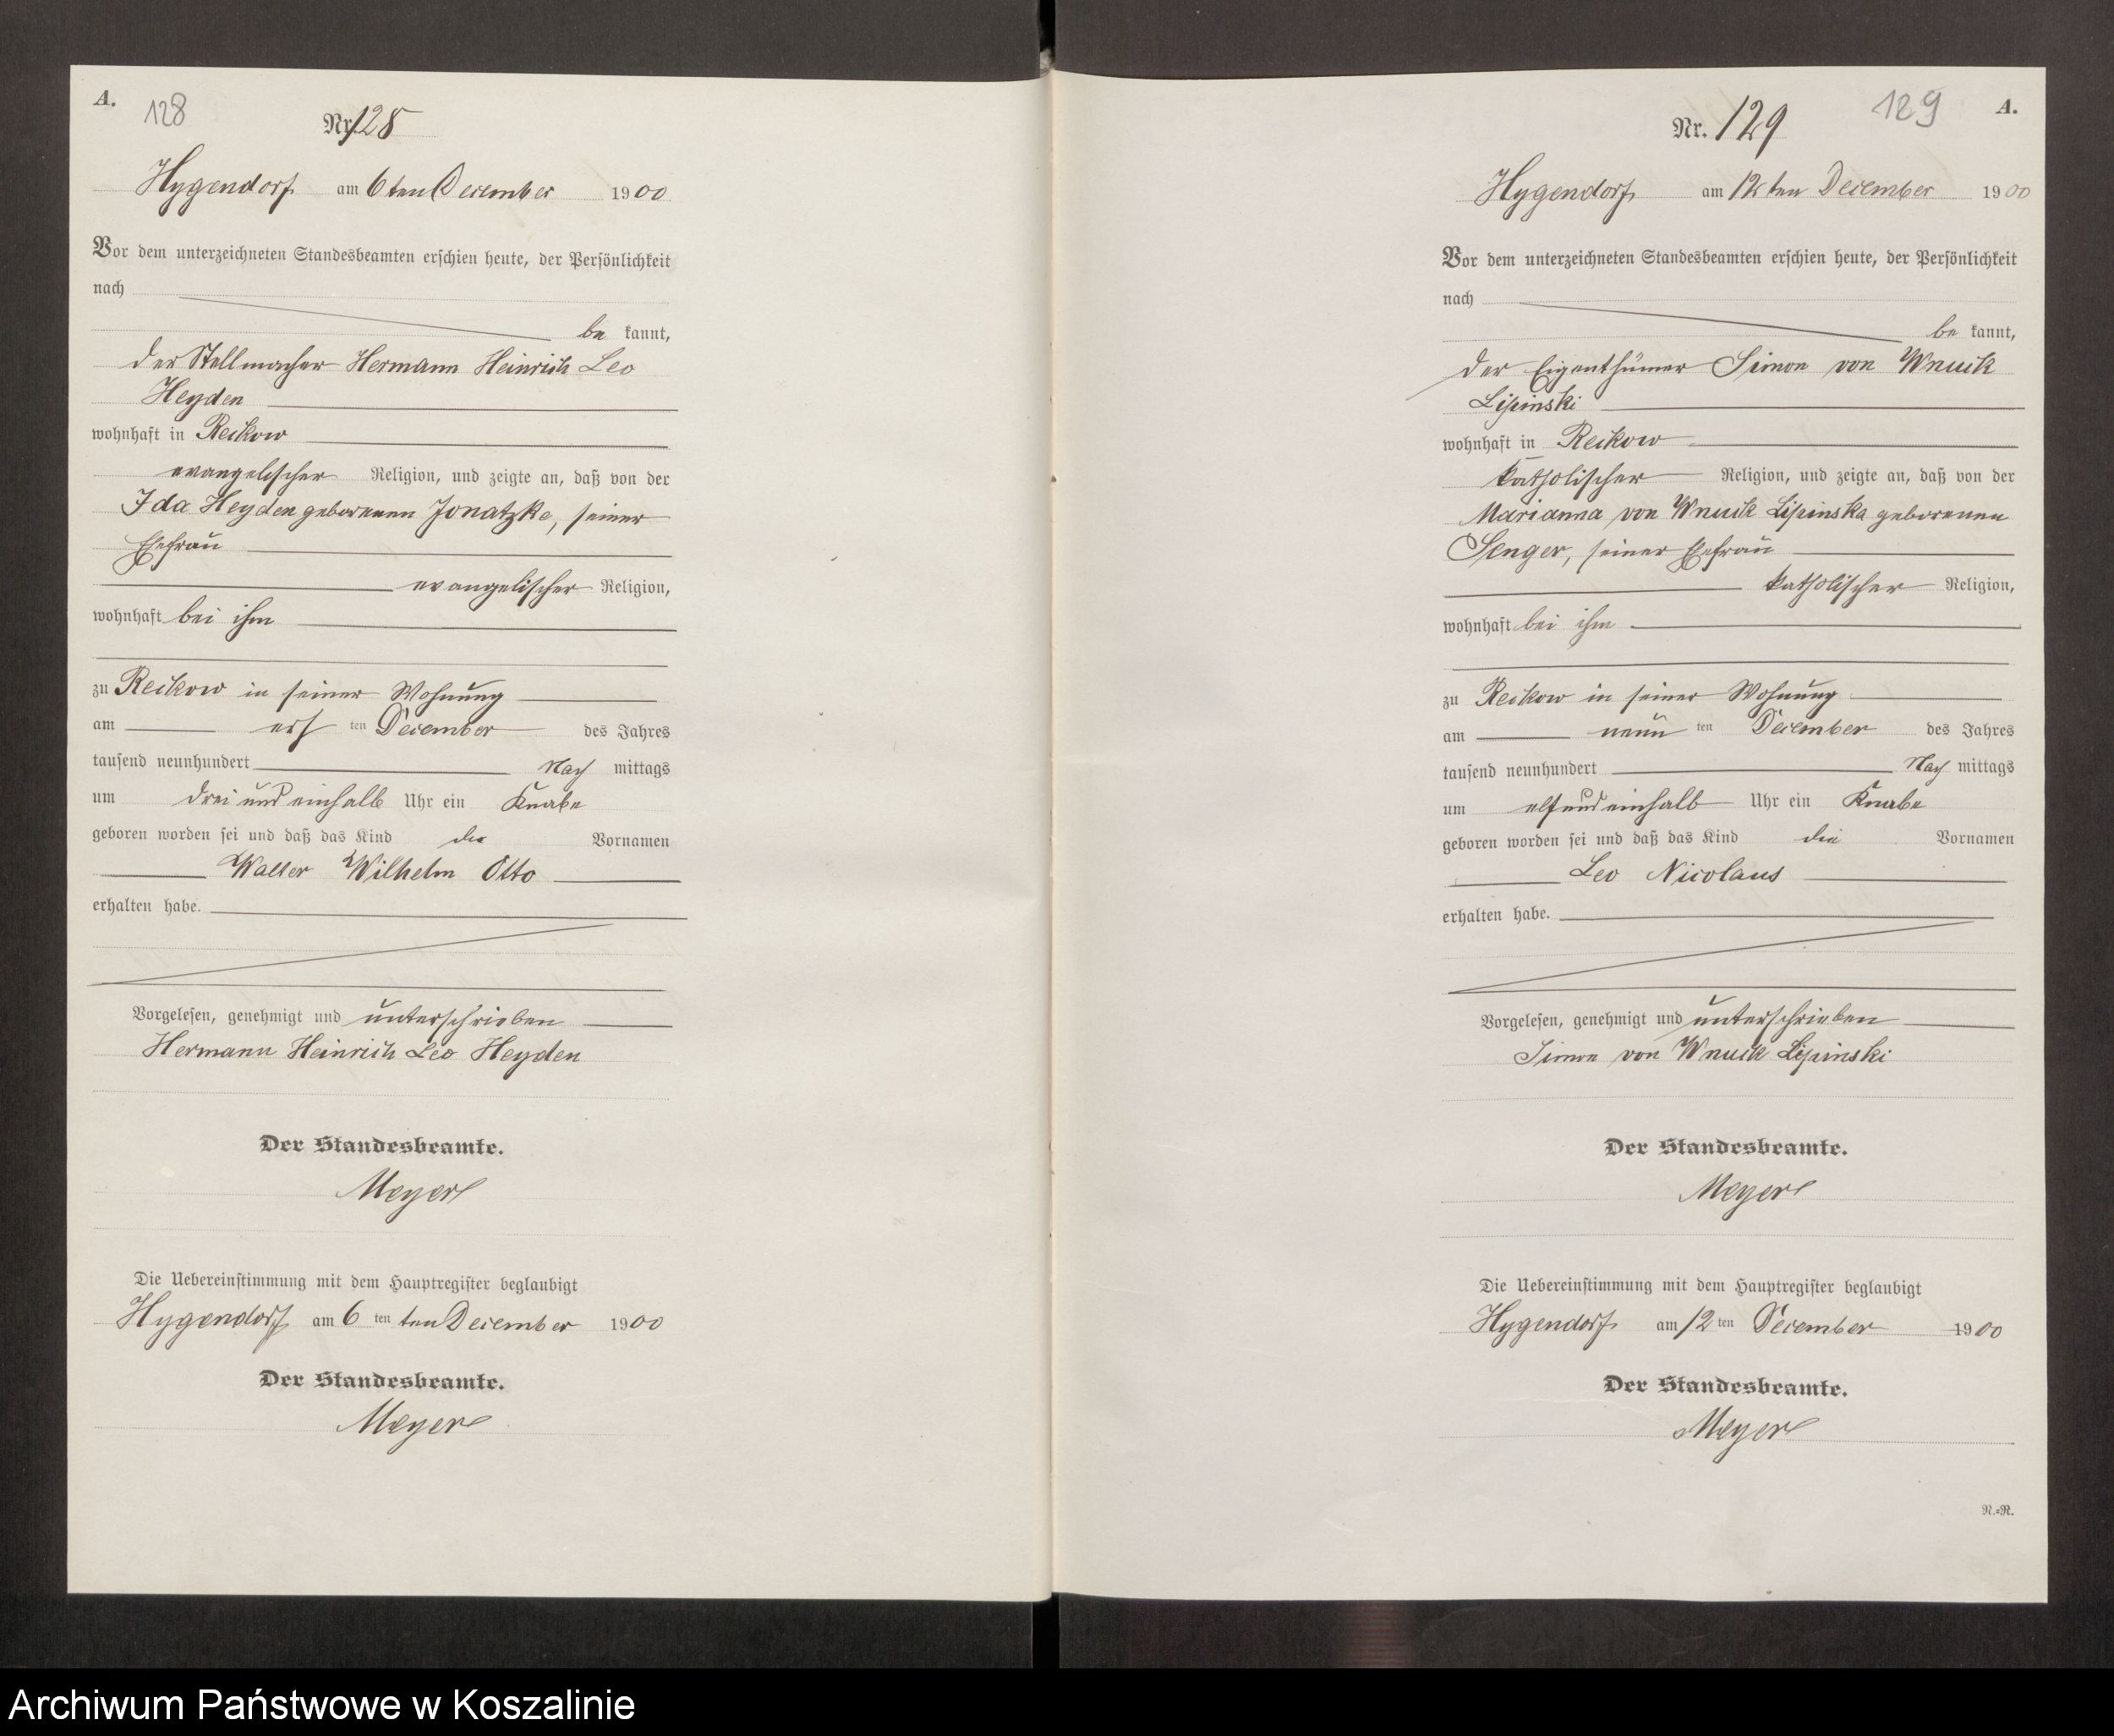 A.
128
Nr. 128
Hygendorf am 6ten December 1900
Vor dem unterzeichneten Standesbeamten erschien heute, der Persönlichkeit
nach
be kannt,
der Stellmacher Hermann Heinrich Leo
Heyden
wohnhaft in Reckow
evangelischer Religion, und zeigte an, daß von der
Ida Heyden geborenen Jonatzke, seiner
Ehefrau
evangelischer Religion,
wohnhaft bei ihm
zu Reckow in seiner Wohnung
am ersten December des Jahres
tausend neunhundert Nach mittags
um drei und einhalb Uhr ein Knabe
geboren worden sei und daß das Kind die Vornamen
Walter Wilhelm Otto
erhalten habe.
Vorgelesen, genehmigt und unterschrieben
Hermann Heinrich Leo Heyden
Der Standesbeamte.
Meyer
Die Uebereinstimmung mit dem Hauptregister beglaubigt
Hygendorf am 6 ten ten December 1900
Der Standesbeamte.
Meyer
129
A.
Nr. 129
Hygendorf am 12ten December 1900
Vor dem unterzeichneten Standesbeamten erschien heute, der Persönlichkeit
nach
be kannt,
der Eigenthümer Simon von Wnuck
Lipinski
wohnhaft in Reckow
katholischer Religion, und zeigte an, daß von der
Marianna von Wnuck Lipinska geborenen
Senger, seiner Ehefrau
katholischer Religion,
wohnhaft bei ihm
zu Reckow in seiner Wohnung
am neun ten December des Jahres
tausend neunhundert Nach mittags
um elf und einhalb Uhr ein Knabe
geboren worden sei und daß das Kind die Vornamen
Leo Nicolaus
erhalten habe.
Vorgelesen, genehmigt und unterschrieben
Simon von Wnuck Lipinski
Der Standesbeamte.
Meyer
Die Uebereinstimmung mit dem Hauptregister beglaubigt
Hygendorf am 12 ten December 1900
Der Standesbeamte.
Meyer
N.=R.
Archiwum Państwowe w Koszalinie